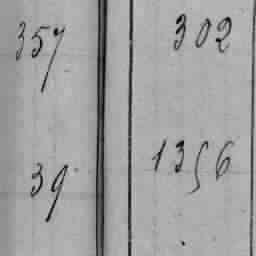 357 302
39 1356